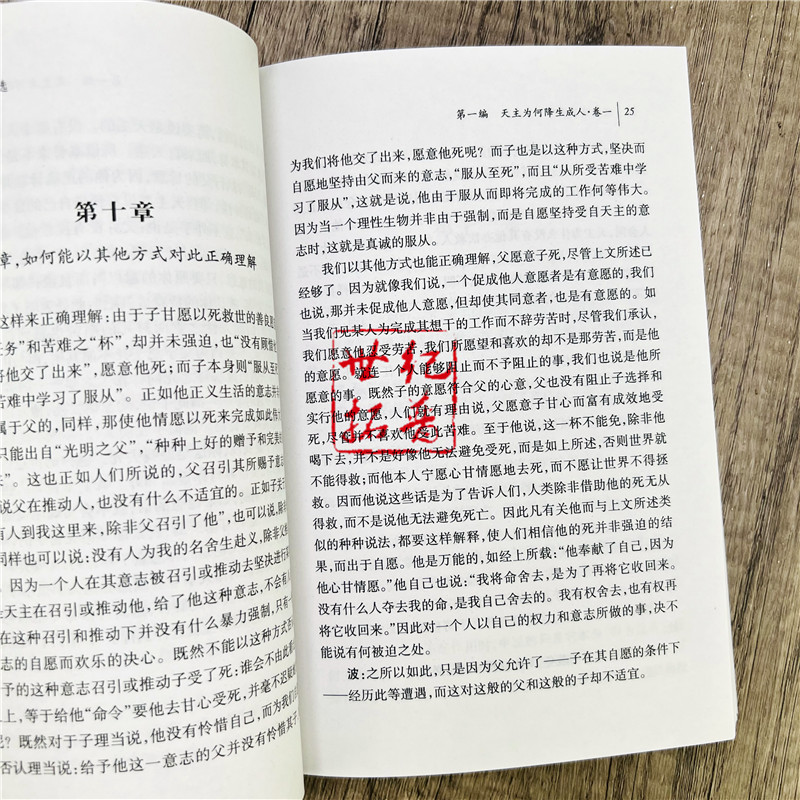 选
第十章
章,如何能以其他方式对此正确理解
这样来正确理解:由于子甘愿以死救世的善良意
任务”和苦难之“杯”,却并未强迫,也“没有顾惜他
将他交了出来”,愿意他死;而子本身则“服从至
苦难中学习了服从”。正如他正义生活的意志并
属于父的,同样,那使他情愿以死来完成如此伟
只能出自“光明之父”,“种种上好的赠予和完美的
”。这也正如人们所说的,父召引其所赐予意
说父在推动人,也没有什么不适宜的。正如子关于
有人到我这里来,除非父召引了他”,也可以说,除非
同样也可以说:没有人为我的名舍生赴义,除非父
。因为一个人在其意志被召引或推动去坚决进行
是天主在召引或推动他,给了他这种意志,不会有人
在这种召引和推动下并没有什么暴力强制,只有
志的自愿而欢乐的决心。既然不能以这种方式否
予的这种意志召引或推动子受了死:谁会不由此
上,等于给他“命令”要他去甘心受死,并毫不迟疑
呢?既然对于子理当说,他没有怜惜自己,而为我们
否认理当说:给予他这一意志的父并没有怜惜其子
第一编 天主为何降生成人·卷一 25
为我们将他交了出来,愿意他死呢?而子也是以这种方式,坚决而
自愿地坚持由父而来的意志,“服从至死”,而且“从所受苦难中学
习了服从”,这就是说,他由于服从而即将完成的工作何等伟大。
因为当一个理性生物并非由于强制,而自愿坚持受自天主的意
志时,这就是真诚的服从。
我们以其他方式也能正确理解,父愿意子死,尽管上文所述已
经够了。因为就像我们说,一个促成他人意愿者是有意愿的,我们
也说,那并未促成他人意愿,但却使其同意者,也是有意愿的。如
当我们见某人为完成其想干的工作而不辞劳苦时,尽管我们承认,
我们愿意他忍受劳苦;我们所愿望和喜欢的却不是那劳苦,而是他
的意愿。就连一个人能够阻止而不予阻止的事,我们也说是他所
愿意的事。既然子的意愿符合父的心意,父也没有阻止子选择和
实行他的意愿,人们就有理由说,父愿意子甘心而富有成效地受
死,尽管并不喜欢他受此苦难。至于他说,这一杯不能免,除非他
喝下去,并不是好像他无法避免受死,而是如上所述,否则世界就
不能得救;而他本人宁愿心甘情愿地去死,而不愿让世界不得拯
救。因而他说这些话是为了告诉人们,人类除非借助他的死无从
得救,而不是说他无法避免死亡。因此凡有关他而与上文所述类
似的种种说法,都要这样解释,使人们相信他的死并非强迫的结
果,而出于自愿。他是万能的,如经上所载:“他奉献了自己,因为
他心甘情愿。”他自己也说:“我将命舍去,是为了再将它收回来。
没有什么人夺去我的命,是我自己舍去的。我有权舍去,也有权再
将它收回来。”因此对一个人以自己的权力和意志所做的事,决不
能说有何被迫之处。
波:之所以如此,只是因为父允许了——子在其自愿的条件下
——经历此等遭遇,而这对这般的父和这般的子却不适宜。
世纪
拓普